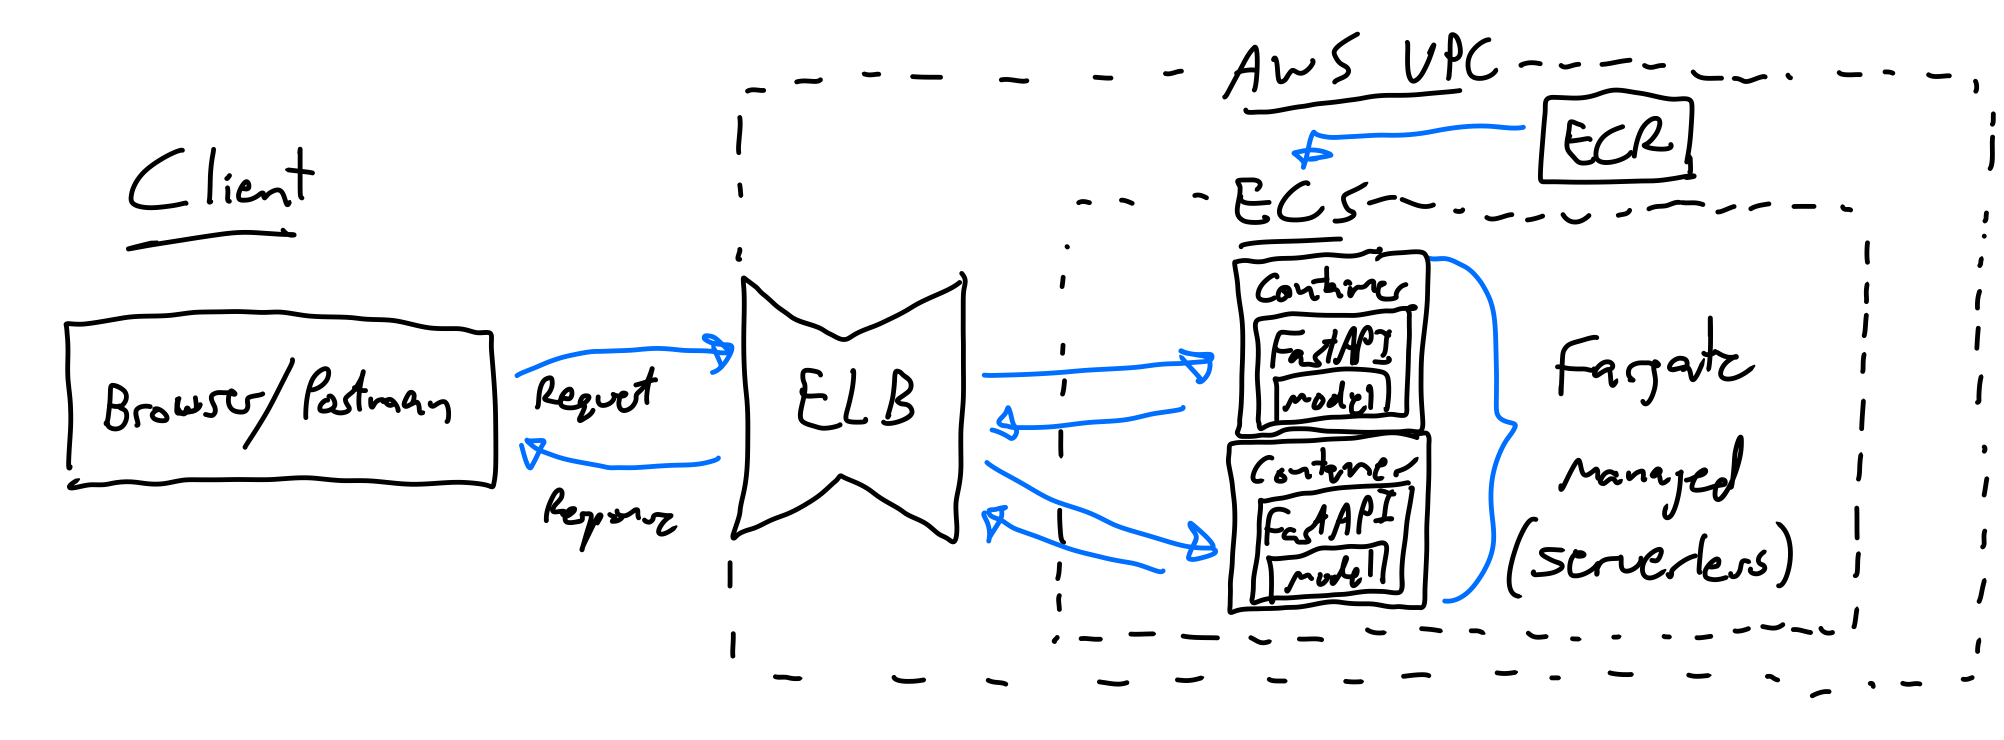 Client
Browser/Postman
Request
Response
ELB
AWS VPC
ECR
ECS
Container
FastAPI
model
Container
FastAPI
model
Fargate
managed
(serverless)